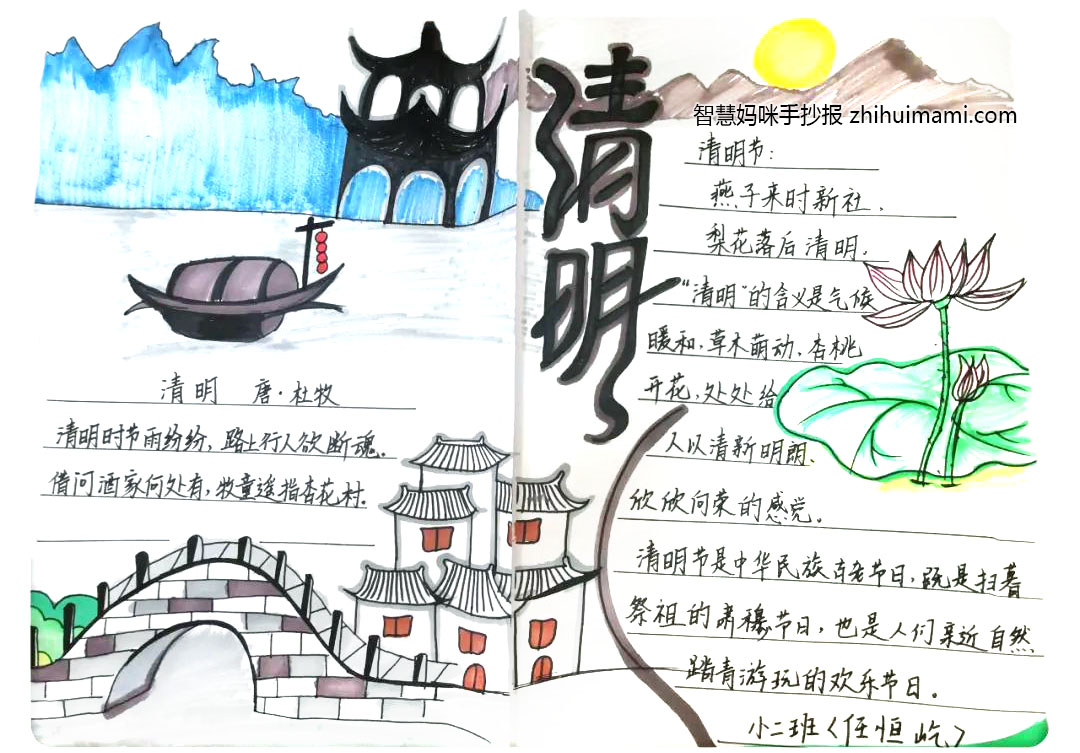 清明
智慧妈咪手抄报 zhihuimami.com
清明 唐·杜牧
清明时节雨纷纷，路上行人欲断魂。
借问酒家何处有，牧童遥指杏花村.
清明节：
燕子来时新社.
梨花落后清明.
“清明”的含义是气候
暖和，草木萌动，杏桃
开花，处处给
人以清新明朗.
欣欣向荣的感觉。
清明节是中华民族古老节日，既是扫暮
祭祖的肃穆节日，也是人们亲近自然
踏青游玩的欢乐节日。
小二班〈任恒屹〉